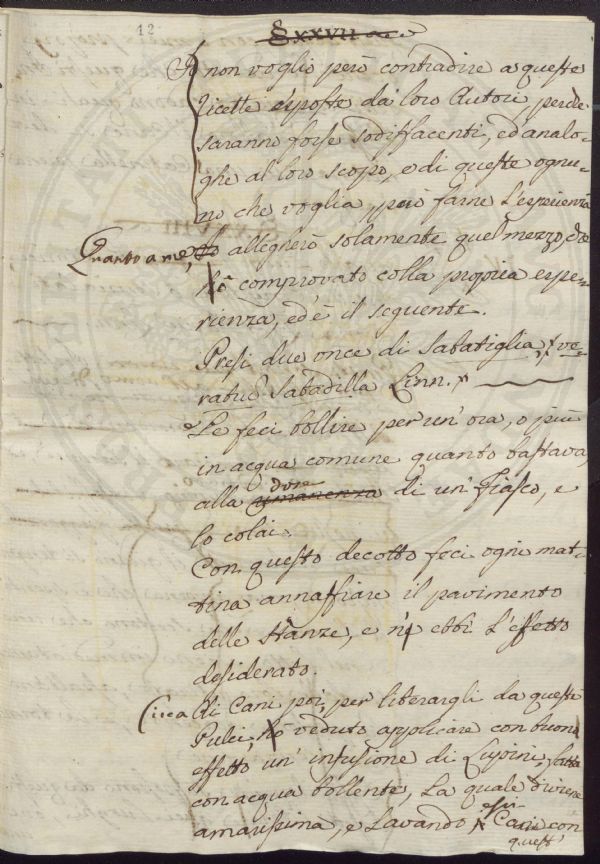 12
§ XXVII
Io non voglio però contradire a queste
ricette esposte da' loro Autori, perchè
saranno forse sodisfacenti, ed analo-
ghe al loro scopo, e di queste ognu-
no che voglia, può farne l'esperienza
Quanto a me, allegherò solamente quel mezzo, che
hò comprovato colla propria espe-
rienza, ed è il seguente.
Presi due once di Sabatiglia, ve-
ratrū Sabadilla Linn.
Le feci bollire per un' ora, o più
in acqua comune quanto bastava,
dose
alla rimanenza di un' Fiasco, e
lo colai.
Con questo decotto feci ogni mat-
tina annaffiare il pavimento
delle Stanze, e n' ebbi l'effetto
desiderato.
Circa di Cani poi, per liberargli da queste
Pulci, hò veduto applicare con buono
effetto un' infusione di Lupini, fatta
con acqua bollente, la quale diviene
essi
amarissima, e lavando i Cani con
quest'